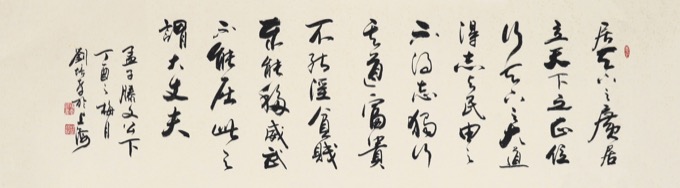 居天下之廣居
立天下之正位
行天下之大道
得志与民由之
不得志獨行
其道富貴
不能淫貧賤
不能移威武
不能屈此之
謂大丈夫
孟子滕文公下
丁酉之梅月
劉於上海